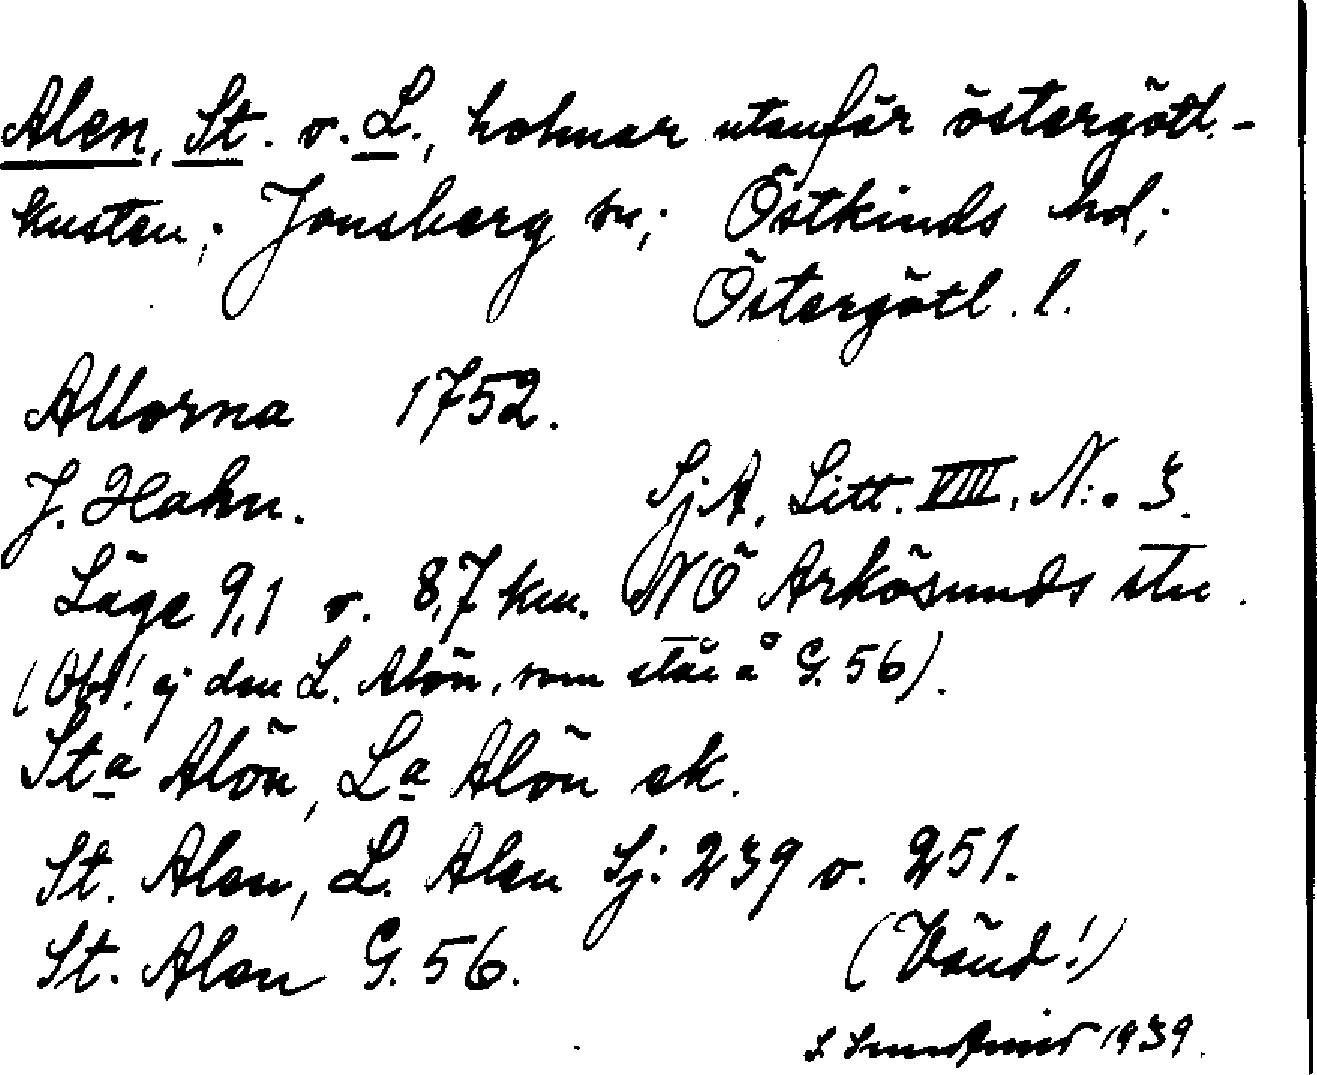 Alen, St. o. L., holmar utanför östergötl.-
kusten; Jonsberg sn; Östkinds hd;
Östergötl. l.
Allorna 1752.
J. Hahn. Sj.A. Litt. VIII. N:o 3.
Läge 9,1 o. 8,7 km. NÖ Arkösunds stn.
(Obs! ej den L. Alön, som står å G. 56).
Sta Alön, La Alön ek.
St. Alen, L. Alen Sj: 239 o. 251.
St. Alen G. 56. (Vänd!)
1939.